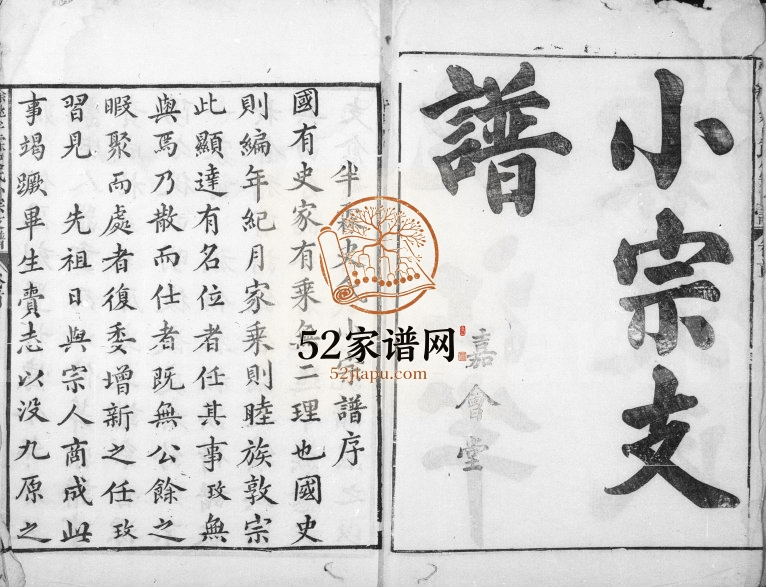 小宗支
譜
嘉會堂
半霖史氏小宗譜序
國有史家有乘無二理也國史
則編年紀月家乘則睦族敦宗
此顯達有名位者任其事玫無
與焉乃散而仕者既無公餘之
暇聚而處者復委增新之任玫
習見 先祖日與宗人商成此
事竭蹶畢生賚志以沒九原之
52家谱网
52jiapu.com